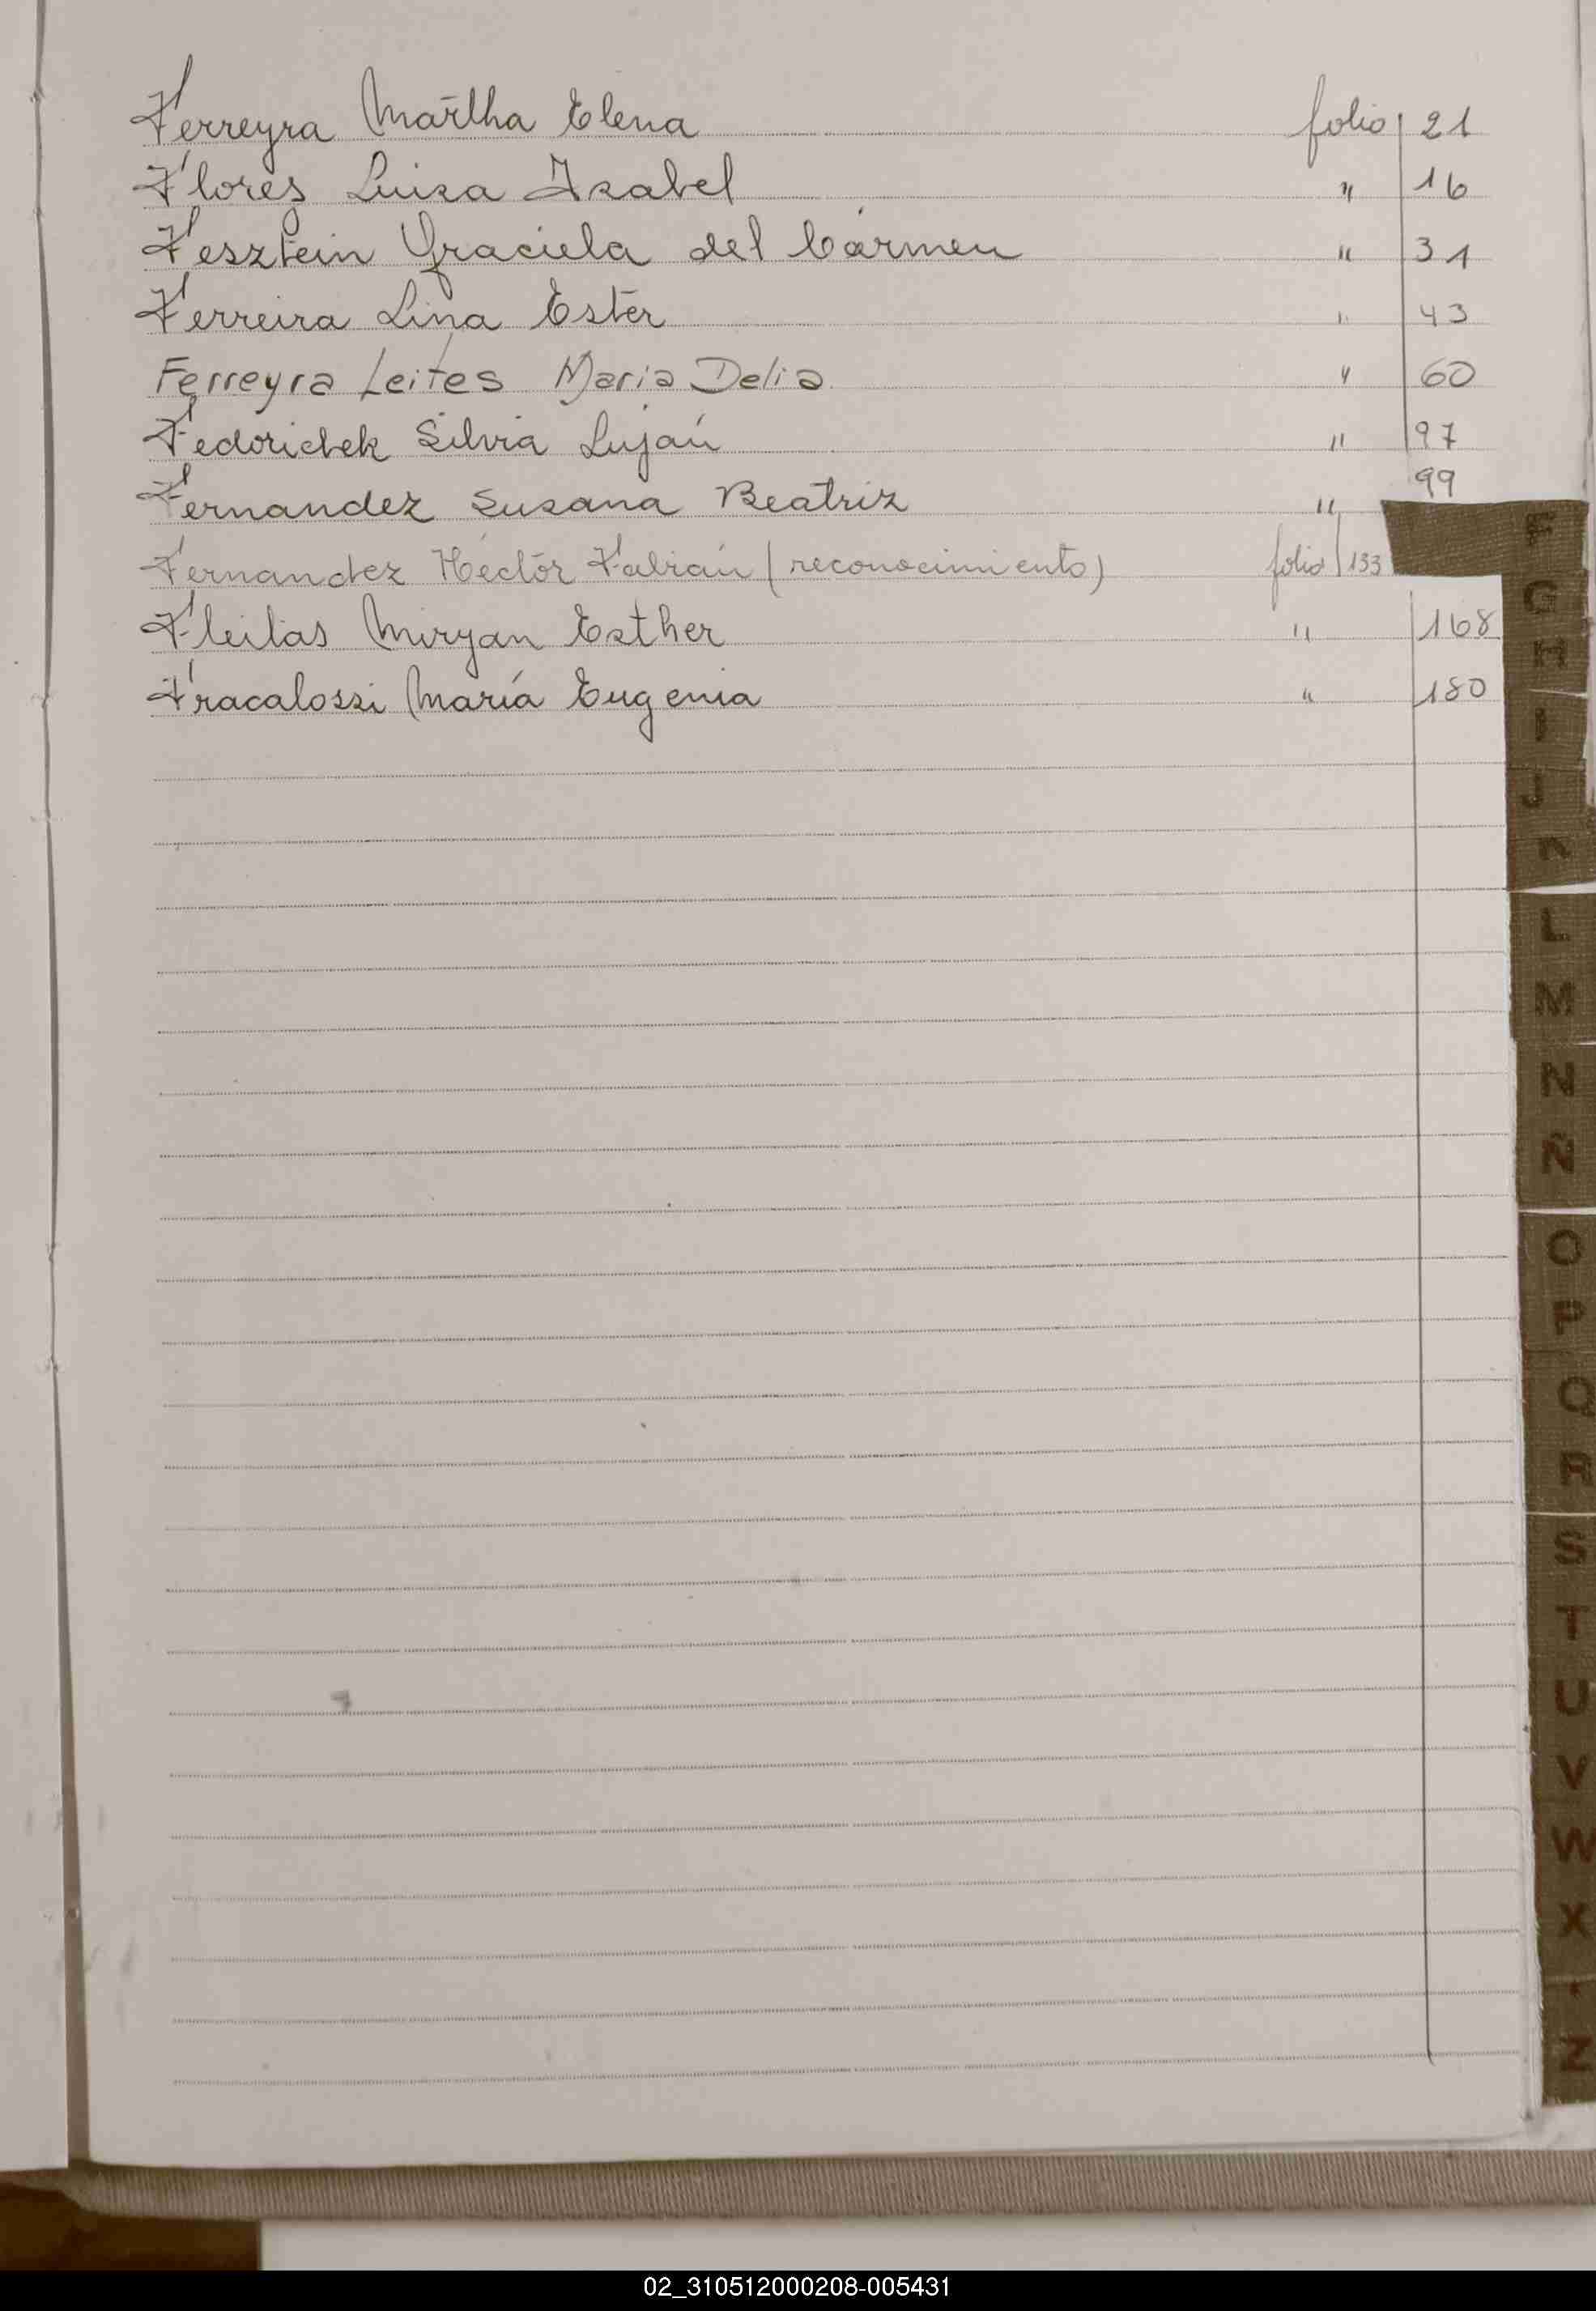 Ferreyra Martha Elena folio 21
Flores Luisa Isabel " 16
Fesztein Graciela del Cármen " 31
Ferreira Lina Ester " 43
Ferreyra Leites Maria Delia " 60
Fedorichek Silvia Luján " 97
Fernandez Susana Beatriz " 99
Fernandez Héctor Fabián (reconocimiento) folio 133
Fleitas Miryan Esther " 168
Fracalossi María Eugenia " 180
F
G
H
I
J
L
M
N
Ñ
O
P
Q
R
S
T
U
V
W
X
Z
02_310512000208-005431